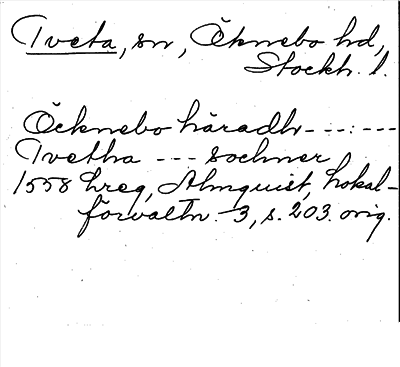 Tveta, sn, Öknebo hd,
Stockh. l.
Öcknebo häradh ---:---
Tvetha --- sochner
1558 hreg, Almquist, Lokal-
förvaltn. 3, s. 203. orig.